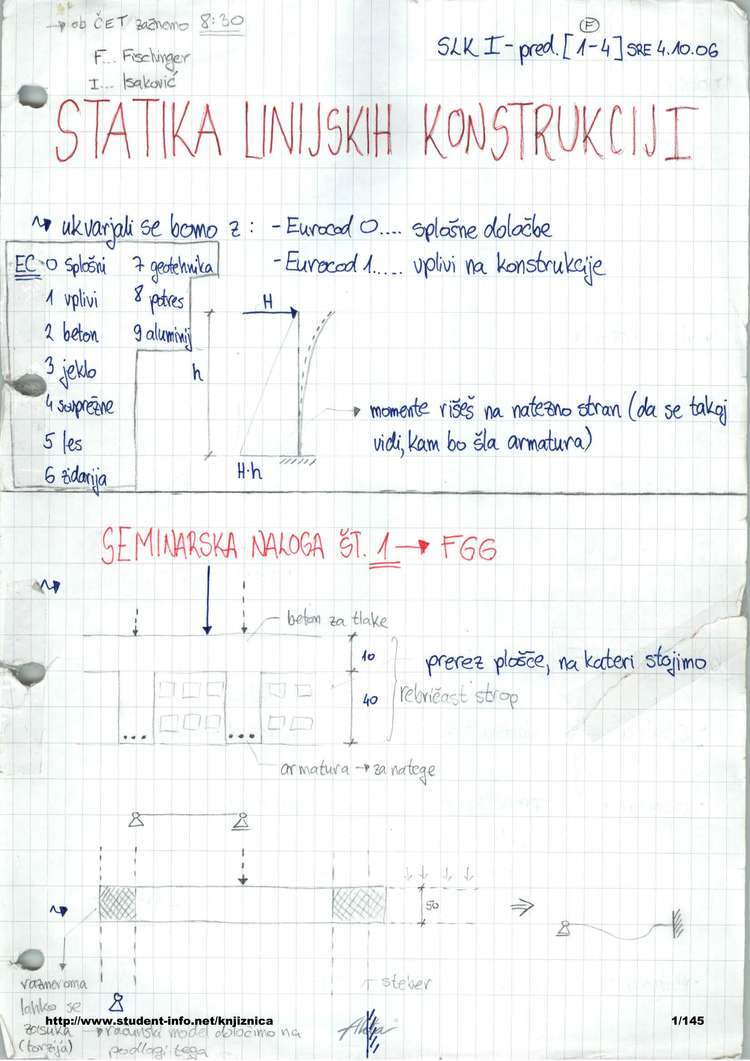 → ob ČET začnemo 8:30
F... Fischinger
I... Isaković
SLK I - pred. [1-4] SRE 4.10.06
F
STATIKA LINIJSKIH KONSTRUKCIJ I
ukvarjali se bomo z: - Eurocod 0.... splošne določbe
- Eurocod 1..... vplivi na konstrukcije
EC - 0 splošni 7 geotehnika
1 vplivi 8 potres
2 beton 9 aluminij
3 jeklo
4 sovprežne
5 les
6 zidarija
H
h
H·h
→ momente rišeš na natezno stran (da se takoj
vidi, kam bo šla armatura)
SEMINARSKA NALOGA ŠT. 1 → FGG
beton za tlake
10
40
rebričast strop
prerez plošče, na kateri stojimo
armatura → za natege
50
⇒
steber
oziroma
lahko se
zasuka
(torzija)
→ računski model določimo na
podlagi tega
http://www.student-info.net/knjiznica
1/145